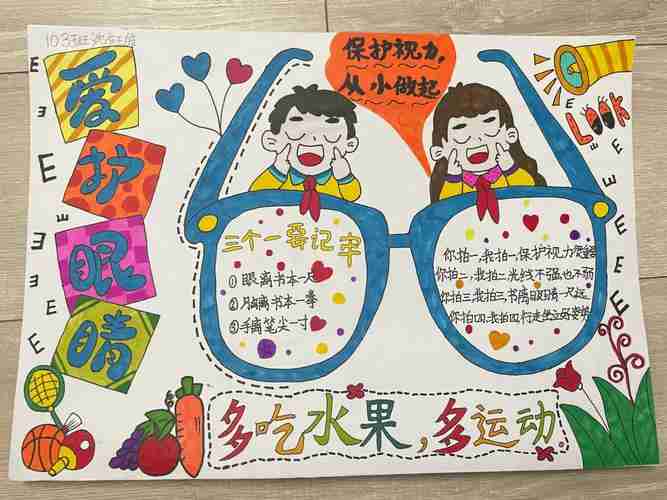 103班
爱护眼睛
保护视力,
从小做起
LOOK
三个一要记牢
①眼离书本一尺
②胸离书本一拳
③手离笔尖一寸
你拍一,我拍一,保护视力
你拍二,我拍二,光线不强也不
你拍三,我拍三,书离眼睛一尺远
你拍四,我拍四,行走坐立好姿势
多吃水果,多运动